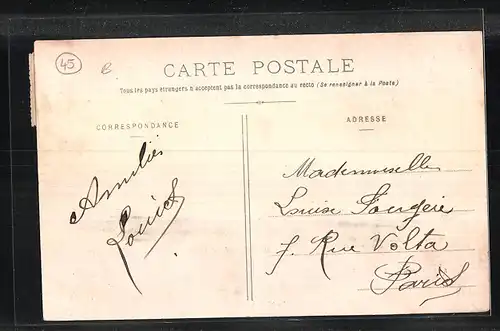 45
CARTE POSTALE
Tous les pays étrangers n'acceptent pas la correspondance au recto (Se renseigner à la Poste)
CORRESPONDANCE
ADRESSE
Amitiés
Louis
Mademoiselle
Louise Fougère
7. Rue Volta
Paris